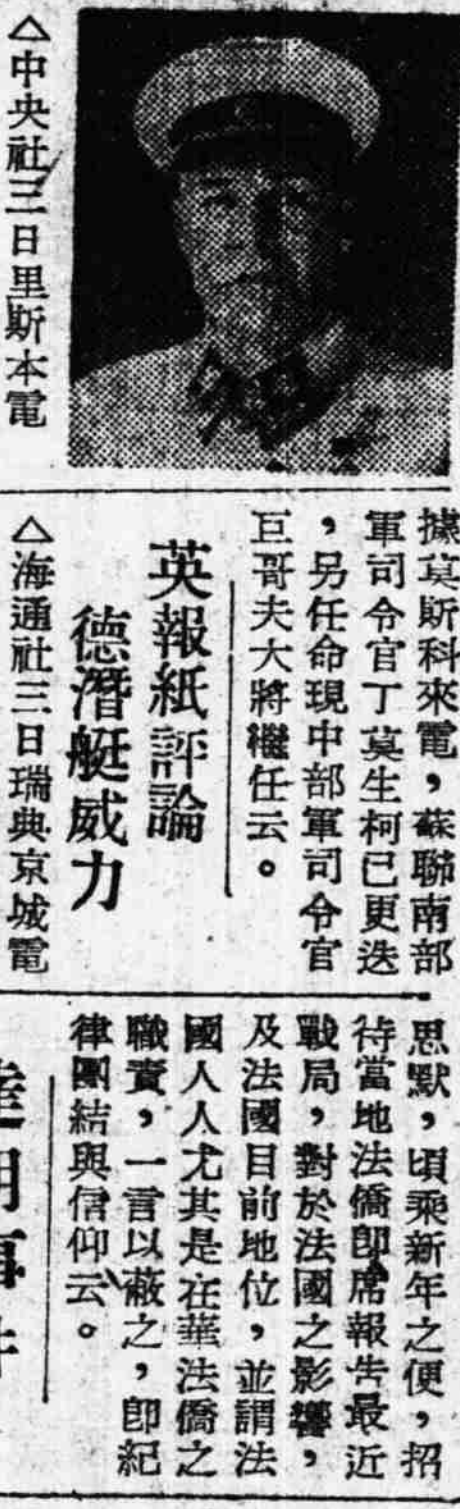 △中央社三日里斯本電
據莫斯科來電，蘇聯南部
軍司令官丁莫生柯已更迭
，另任命現中部軍司令官
巨哥夫大將繼任云。
英報紙評論
德潛艇威力
△海通社三日瑞典京城電
思默，頃乘新年之便，招
待當地法僑卽席報告最近
戰局，對於法國之影響，
及法國目前地位，並謂法
國人人尤其是在華法僑之
職責，一言以蔽之，卽紀
律團結與信仰云。